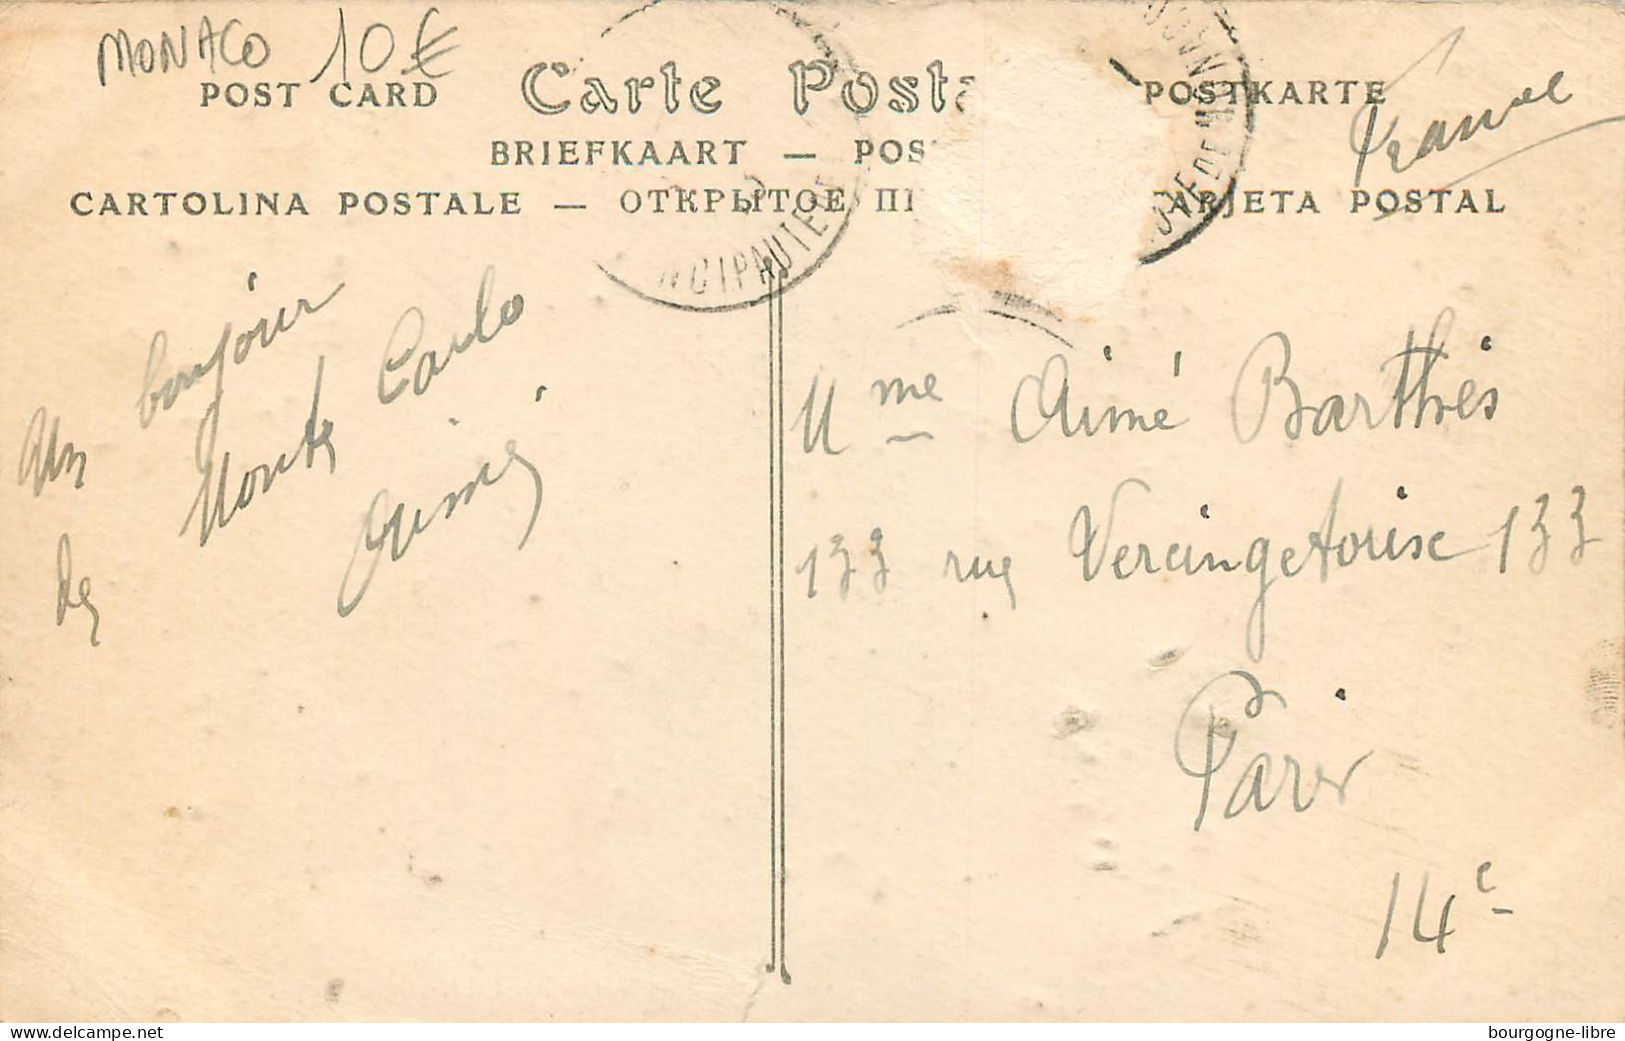 MONACO 10€
POST CARD Carte Posta POSTKARTE
France
BRIEFKAART — POS
CARTOLINA POSTALE — ОТКРЫТОЕ ПИ ARJETA POSTAL
NCIPAUTE DE
PTÉ DE MONACO
Un bonjour
de Monte Carlo
Aimé
Mme Aimé Barthès
133 rue Vercingetorise 133
Paris
14e
bourgogne-libre